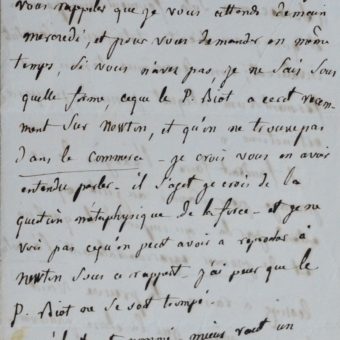 vous rappeler que je vous attends demain
mercredi, et pour vous demander en même
temps, si vous n'avez pas, je ne sais sous
quelle forme, ceque le P. Biot a ecrit recem-
ment sur Newton, et qu'on ne trouve pas
dans le commerce - je crois vous en avoir
entendu parler - il s'agit je crois de la
question métaphysique de la force - et je ne
voi pas cequ'on peut avoir a reprocher à
Newton sous ce rapport - j'ai peur que le
P. Biot ne se soit trompé
mieux vaut un